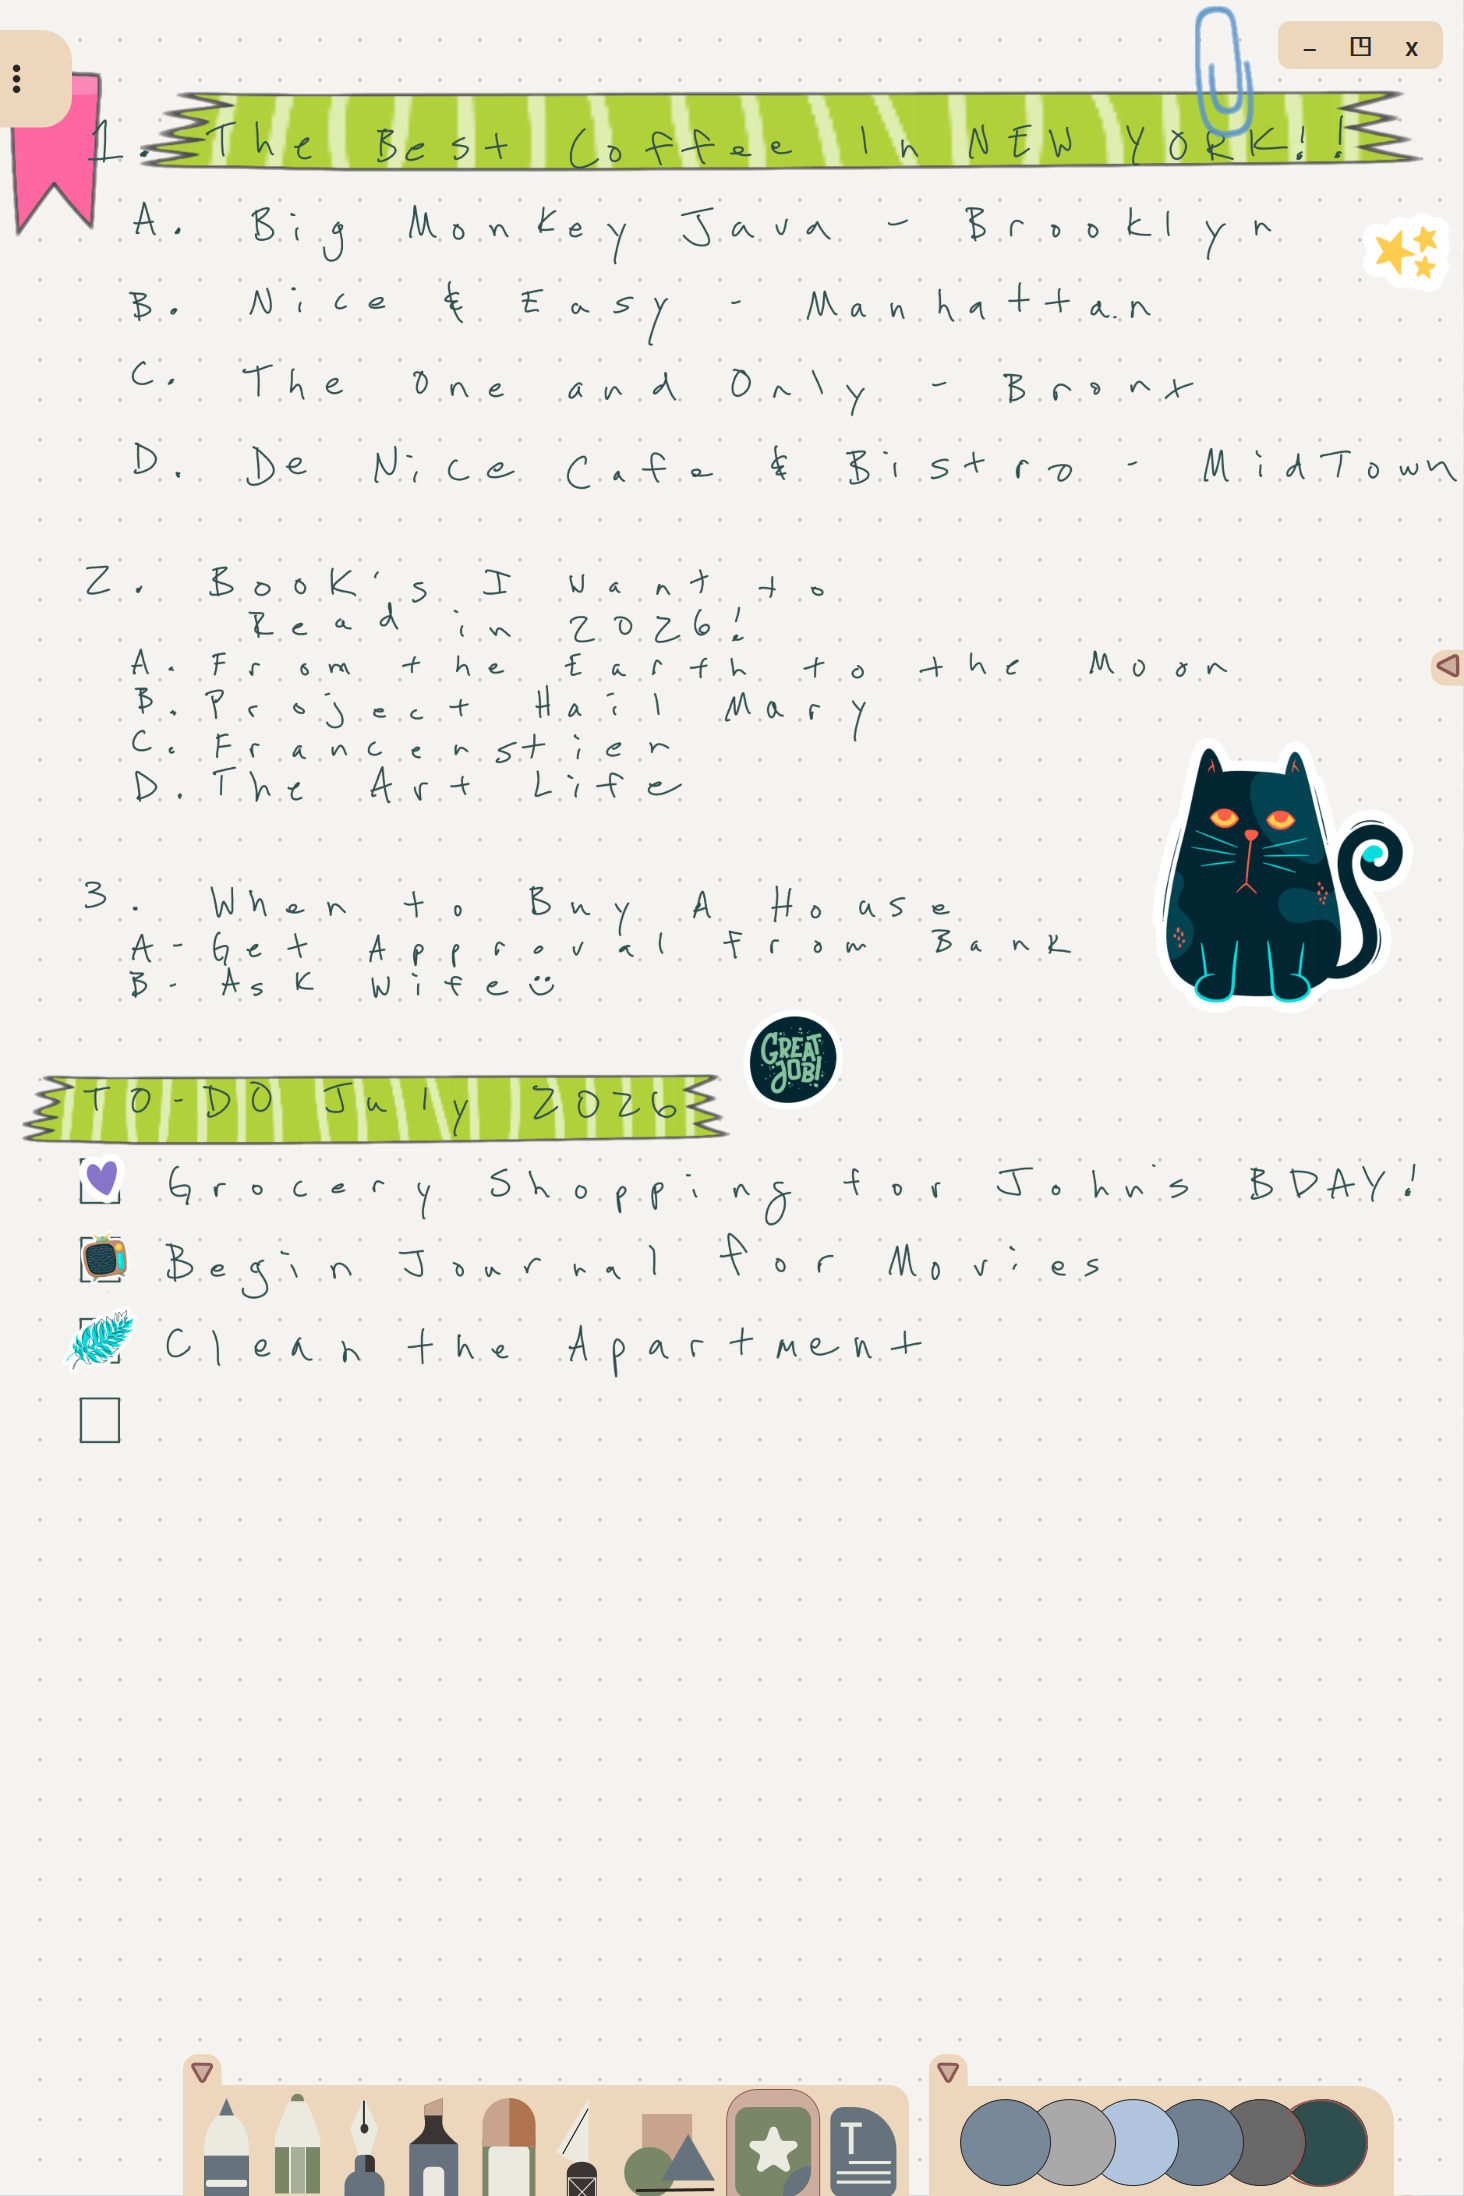 1. The Best Coffee In NEW YORK!!
A. Big Monkey Java - Brooklyn
B. Nice & Easy - Manhattan
C. The One and Only - Bronx
D. De Nice Cafe & Bistro - MidTown
2. Book's I Want to
Read in 2026!
A. From the Earth to the Moon
B. Project Hail Mary
C. Francenstien
D. The Art Life
3. When to Buy A House
A- Get Approval from Bank
B- Ask Wife
GREAT JOB!
TO-DO July 2026
Grocery Shopping for John's BDAY!
Begin Journal for Movies
Clean the Apartment